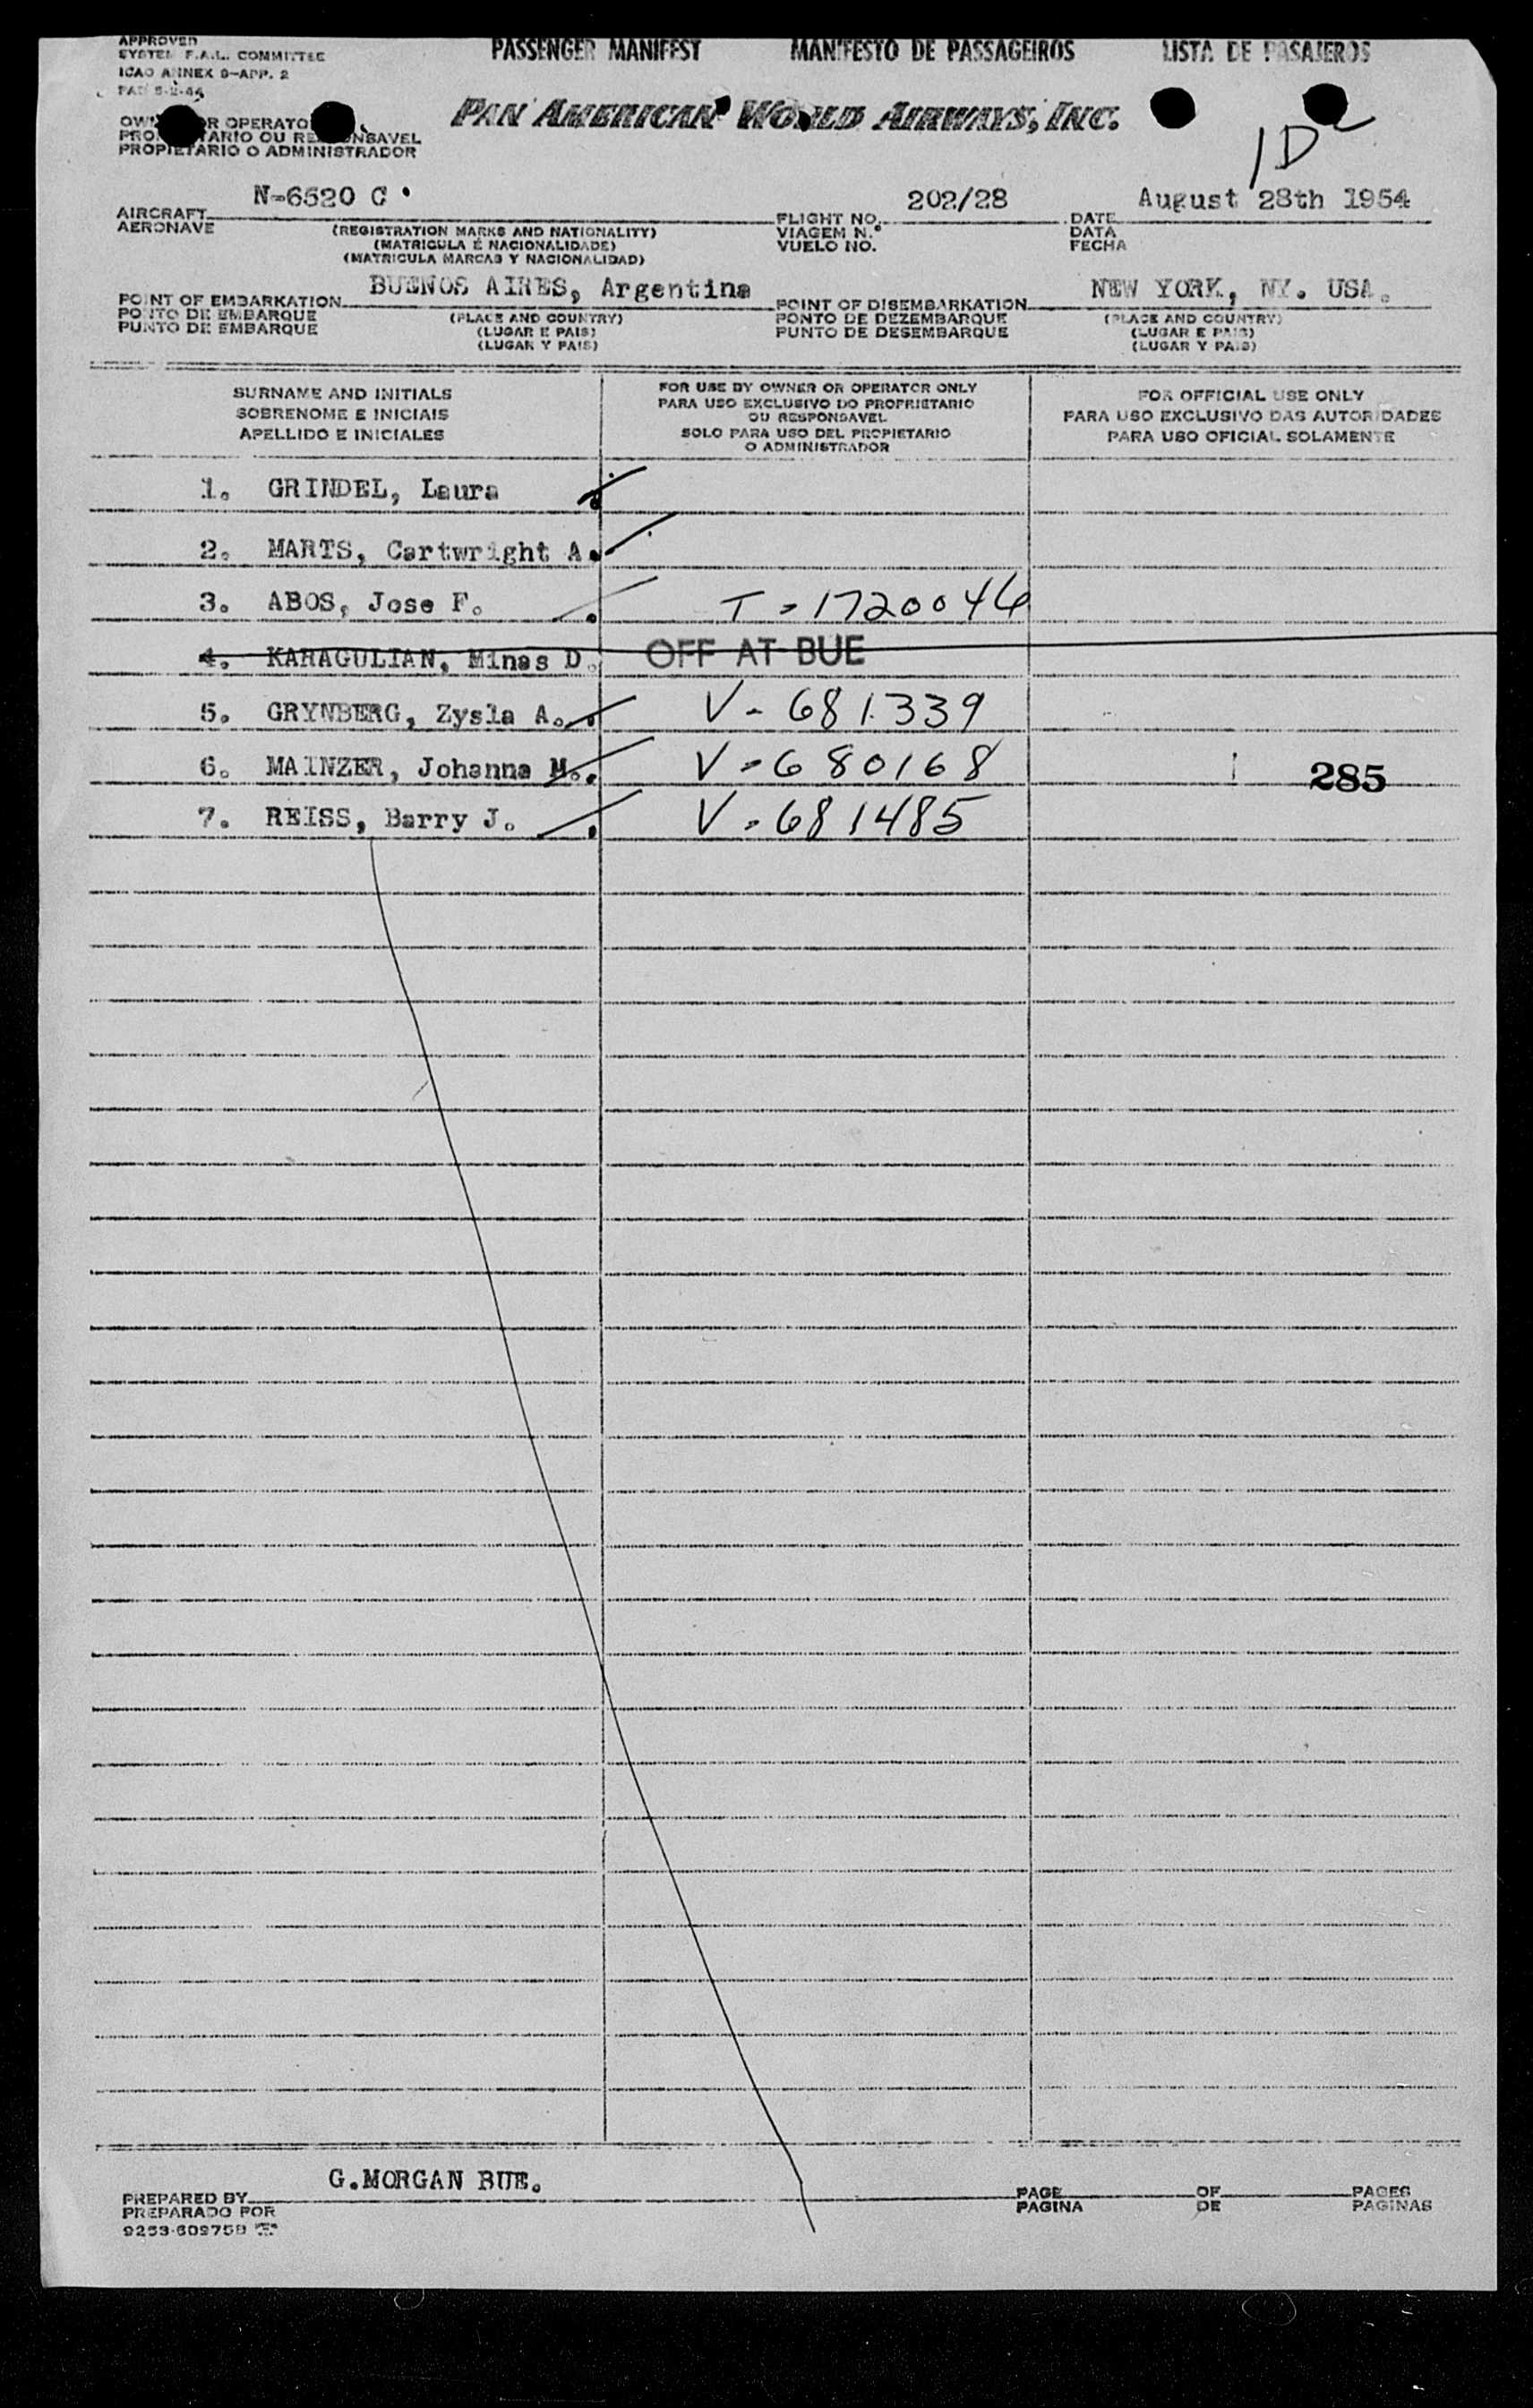 APPROVED
SYSTEM F.A.L. COMMITTEE
ICAO ANNEX 9-APP. 2
PASSENGER MANIFEST MANIFESTO DE PASSAGEIROS LISTA DE PASAJEROS
PAN AMERICAN WORLD AIRWAYS, INC.
1D
PROPIETARIO O ADMINISTRADOR
N-6520 C 202/28 August 28th 1954
AIRCRAFT FLIGHT NO. DATE
AERONAVE (REGISTRATION MARKS AND NATIONALITY) VIAGEM N.º DATA
(MATRICULA E NACIONALIDADE) VUELO NO. FECHA
(MATRICULA MARCAS Y NACIONALIDAD)
BUENOS AIRES, Argentina NEW YORK, NY. USA.
POINT OF EMBARKATION POINT OF DISEMBARKATION
PONTO DE EMBARQUE (PLACE AND COUNTRY) PONTO DE DEZEMBARQUE (PLACE AND COUNTRY)
PUNTO DE EMBARQUE (LUGAR E PAIS) PUNTO DE DESEMBARQUE (LUGAR E PAIS)
(LUGAR Y PAIS) (LUGAR Y PAIS)
SURNAME AND INITIALS FOR USE BY OWNER OR OPERATOR ONLY FOR OFFICIAL USE ONLY
SOBRENOME E INICIAIS PARA USO EXCLUSIVO DO PROPRIETARIO PARA USO EXCLUSIVO DAS AUTORIDADES
OU RESPONSAVEL
APELLIDO E INICIALES SOLO PARA USO DEL PROPIETARIO PARA USO OFICIAL SOLAMENTE
O ADMINISTRADOR
1. GRINDEL, Laura
2. MARTS, Cartwright A.
3. ABOS, Jose F. T-1720046
4. KARAGULIAN, Minas D. OFF AT BUE
5. GRYNBERG, Zysla A. V-681339
6. MAINZER, Johanna M. V-680168 285
7. REISS, Barry J. V-681485
G.MORGAN BUE.
PREPARED BY PAGE OF PAGES
PREPARADO POR PAGINA DE PAGINAS